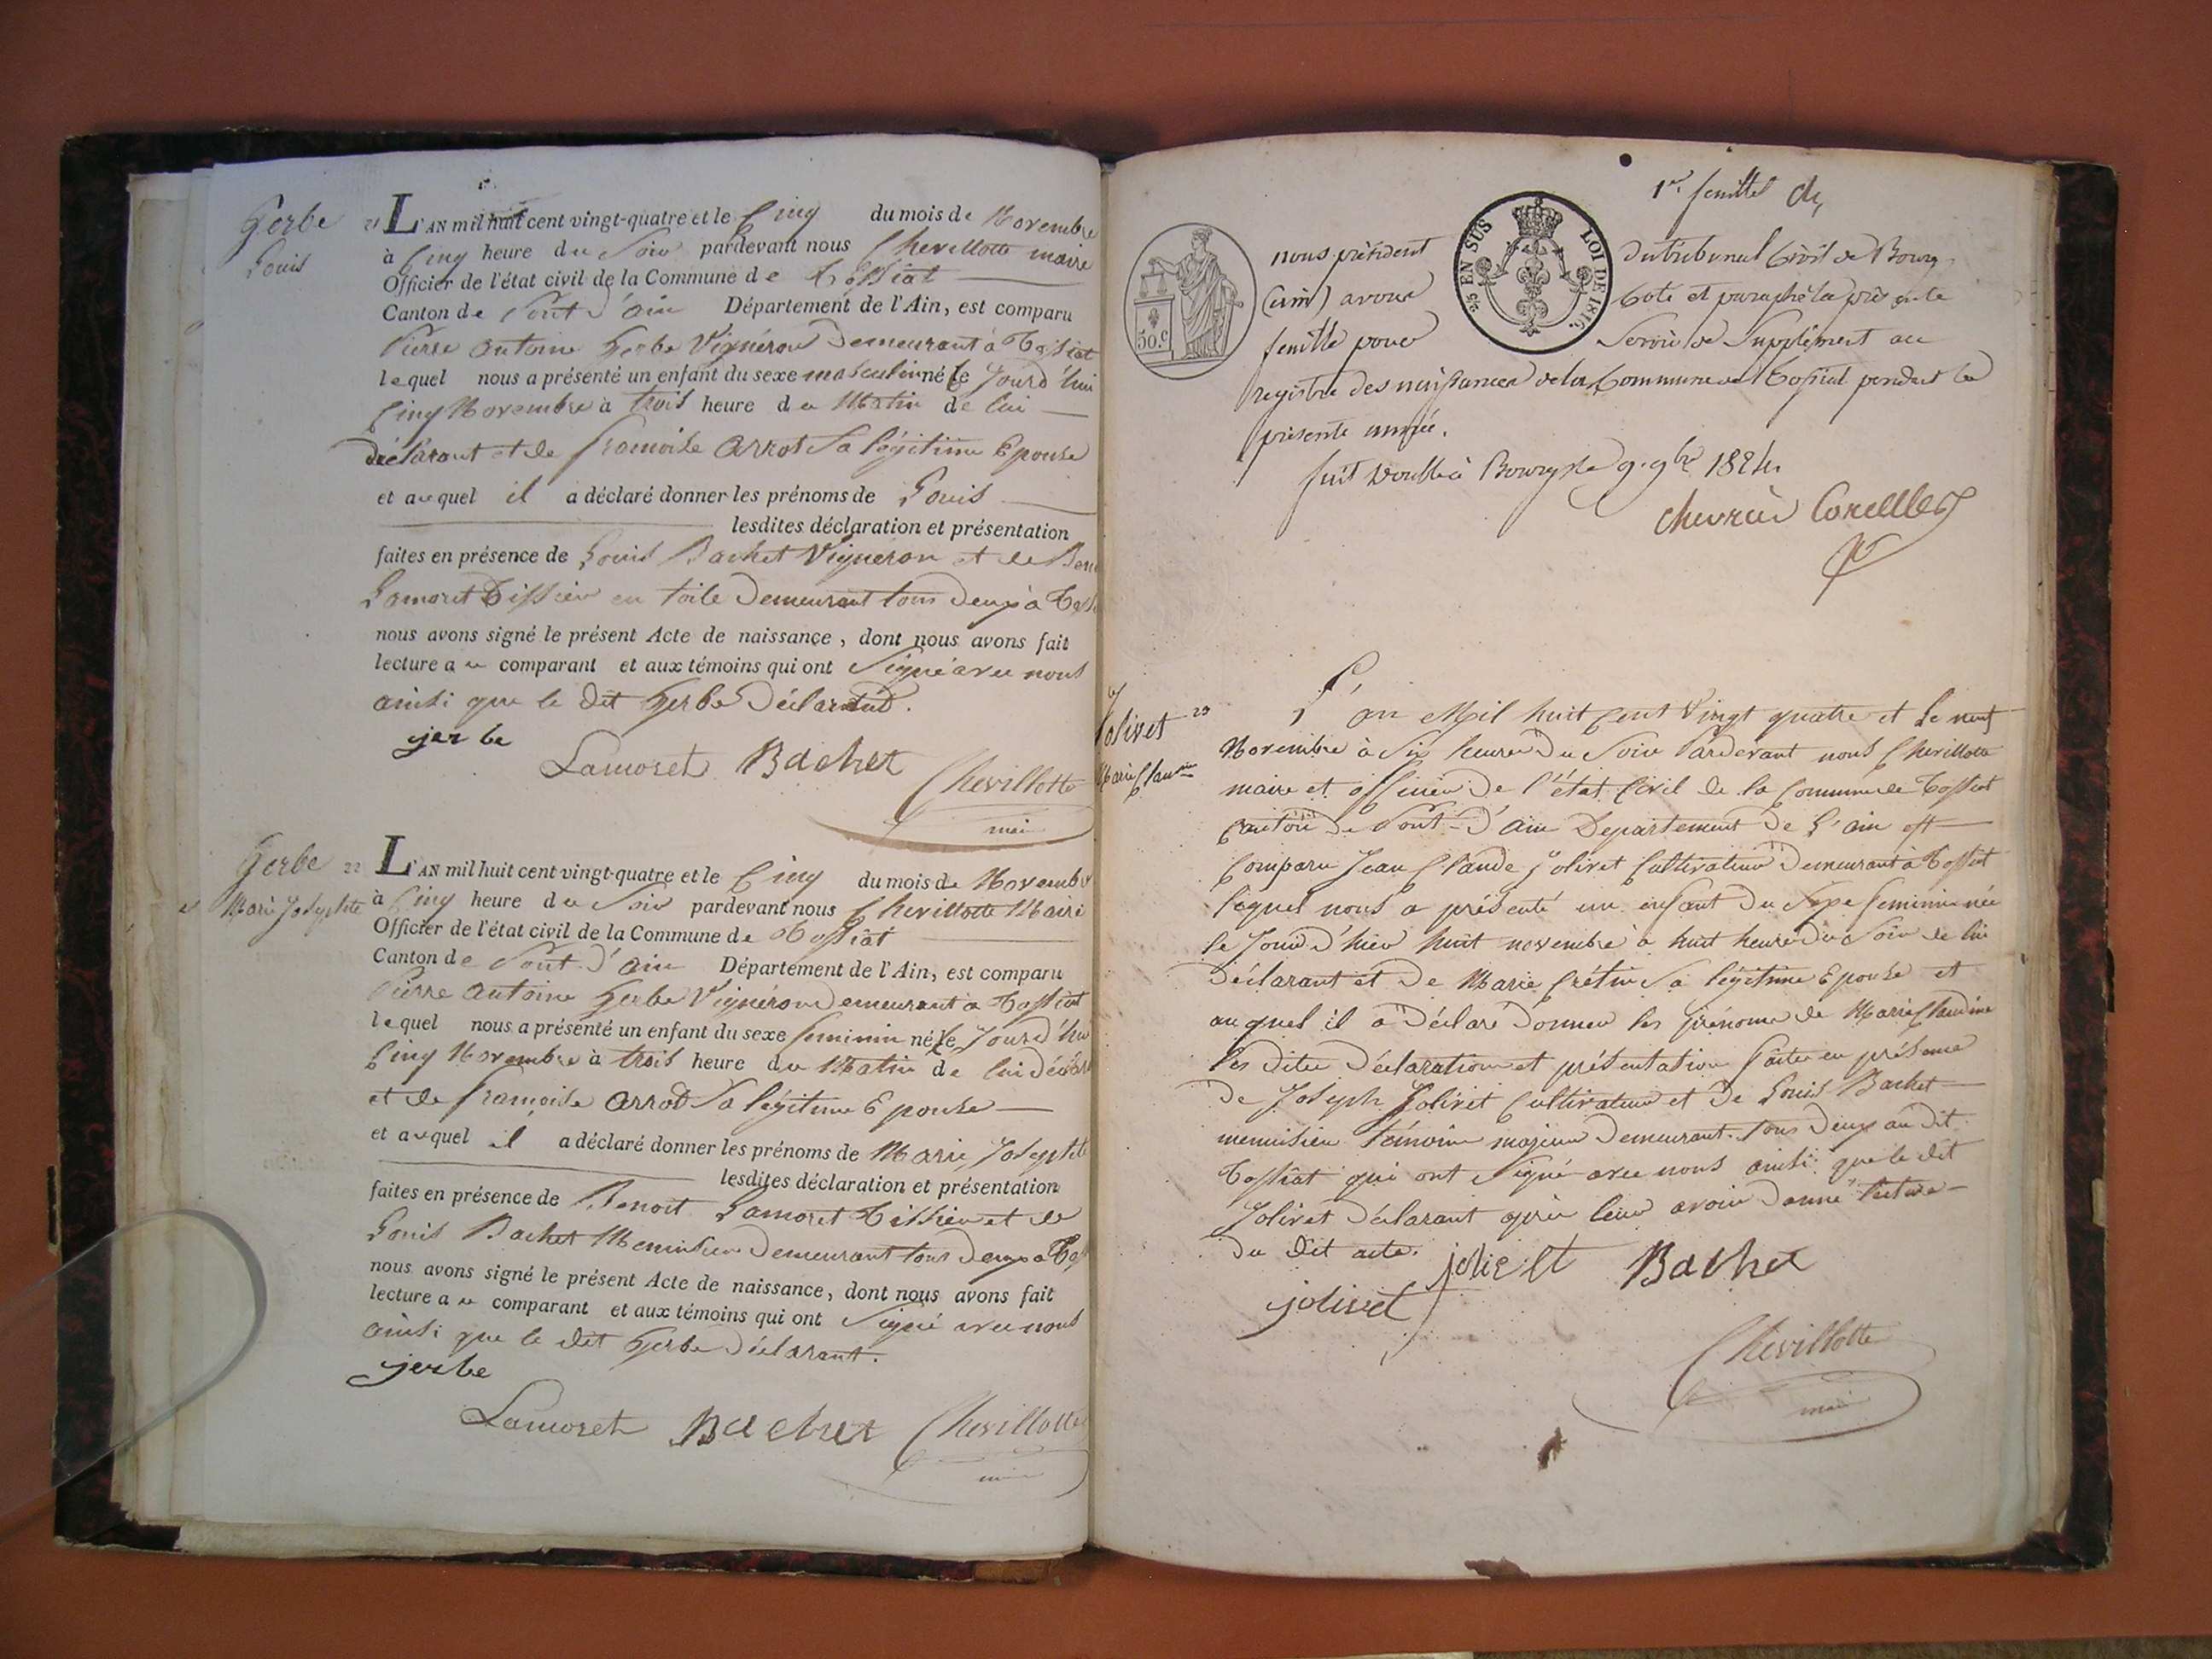 Gerbe
Louis
21 L'AN mil huit cent vingt-quatre et le Cinq du mois de Novembre
à Cinq heure du Soir pardevant nous Chevillotte maire
Officier de l'état civil de la Commune de Tossiat
Canton de Pont d'ain Département de l'Ain, est comparu
Pierre Antoine Gerbe Vignéron Demeurant à Tossiat
lequel nous a présenté un enfant du sexe masculin né le Jourd'hui
Cinq Novembre à trois heure du Matin de lui
déclarant et de francoise Arrot Sa légitime Epouse
et auquel il a déclaré donner les prénoms de Louis
lesdites déclaration et présentation
faites en présence de Louis Bachet Vigneron et de Ben
Lamoret Tissier en toile Demeurant tous Deux à Toss
nous avons signé le présent Acte de naissance, dont nous avons fait
lecture au comparant et aux témoins qui ont Signé avec nous
ainsi que le dit Gerbe Déclarant.
jerbe
Lamoret Bachet Chevillotte
maire
Gerbe
Marie Josephte
22 L'AN mil huit cent vingt-quatre et le Cinq du mois de Novembre
à Cinq heure du Soir pardevant nous Chevillotte Maire
Officier de l'état civil de la Commune de Tossiat
Canton de Pont-d'ain Département de l'Ain, est comparu
Pierre Antoine Gerbe Vignéron Demeurant à Tossiat
lequel nous a présenté un enfant du sexe feminin né le Jourd'hui
Cinq Novembre à trois heure du Matin de lui déclarant
et de francoise Arrot Sa légitime Epouse
et auquel il a déclaré donner les prénoms de Marie Josephte
lesdites déclaration et présentation
faites en présence de Benoit Lamoret Tissier et de
Louis Bachet Menuisier Demeurant tous Deux à Toss
nous avons signé le présent Acte de naissance, dont nous avons fait
lecture au comparant et aux témoins qui ont Signé avec nous
ainsi que le dit Gerbe Déclarant.
jerbe
Lamoret Bachet Chevillotte
maire
1er feuillet
50. C
25 EN SUS LOI DE 1816.
nous président du tribunal Civil de Bourg
(ain) avons Coté et paraphé la présente
feuille pour Servir de Supplément au
registre des naissances de la Commune de Tossiat pendant la
présente année.
fait double à Bourg le 9. 9bre 1824
chevrier Corcelles
Jolivet 23
Marie Claudine
L'an Mil huit Cent Vingt quatre et Le neuf
Novembre à Six heure Du Soir Pardevant nous Chevillotte
maire et officier De l'état Civil de la Commune de Tossiat
Canton De Pont-D'ain Departement De L'ain est
Comparu Jean Claude Jolivet Cultivateur Demeurant à Tossiat
lequel nous a présenté un enfant Du Sexe feminin née
le Jour d'hier huit novembre à huit heure Du Soir de lui
Déclarant et De Marie Crétin Sa légitime Epouse et
auquel il a Déclaré Donner les prénoms de Marie Claudine
les dites Déclaration et présentation faites en présence
De Joseph Jolivet Cultivateur et De Louis Bachet
menuisier témoins majeurs Demeurant tous Deux au dit
Tossiat qui ont Signé avec nous ainsi que le dit
Jolivet Déclarant après leur avoir Donné lecture
Du dit acte.
jolivet Bachet
jolivet
Chevillotte
maire